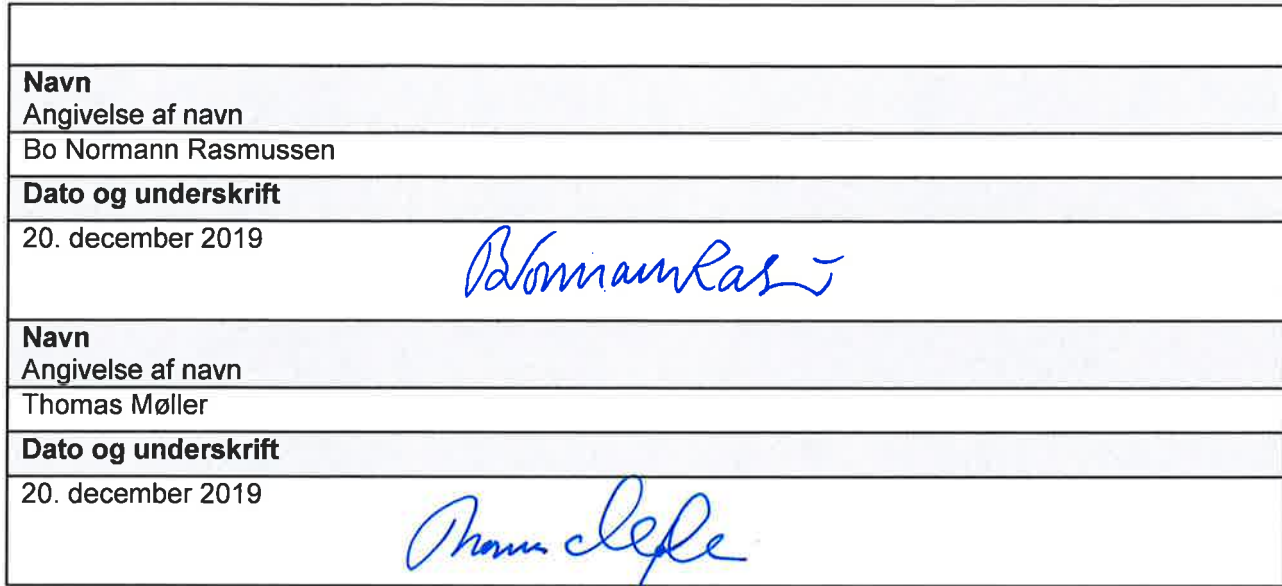 Navn
Angivelse af navn
Bo Normann Rasmussen
Dato og underskrift
20. december 2019
Navn
Angivelse af navn
Thomas Møller
Dato og underskrift
20. december 2019